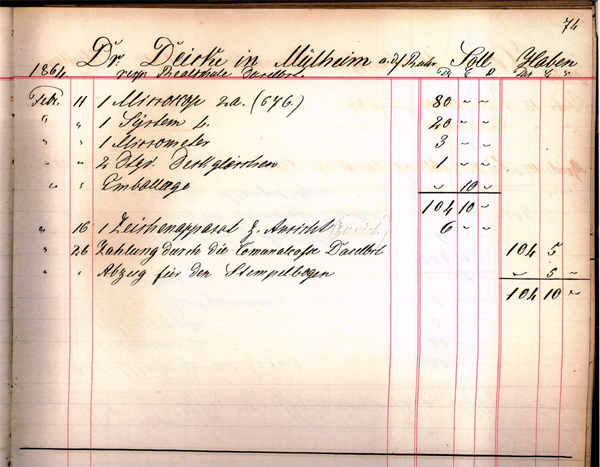 74
Dr. Deicke in Mülheim a. d. Ruhr Soll Haben
1864. resp. Realschule daselbst.
Febr. 11 1 Microskop 2a. (676.) 80 „ „
„ „ 1 System 20 „ „
„ „ 1 Micrometer 3 „ „
„ „ 2 Dtzd. Deckgläschen 1 „ „
„ „ Emballage „ 10 „
104 10 „
„ 16 1 Zeichenapparat z. Ansicht 6 „ „
„ 26 Zahlung durch die daselbst 104 5
„ „ Abzug für den Stempelbogen „ 5 „
104 10 „